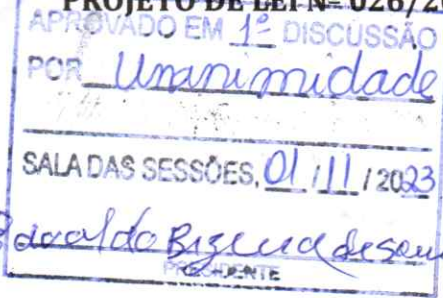 PROJETO DE LEI Nº 026/20
APROVADO EM 1ª DISCUSSÃO
POR Unanimidade
SALA DAS SESSÕES, 01 / 11 / 2023
PRESIDENTE